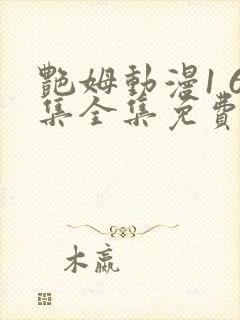 艷姆動漫1 6
集全集免費
木嬴